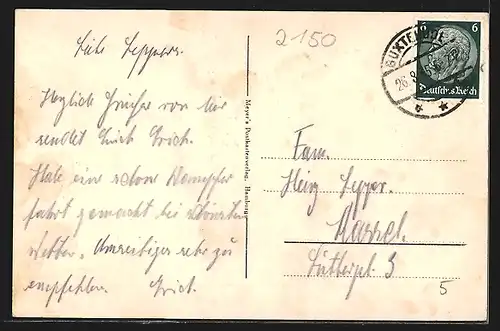 Liebe Leppers.
Herzliche Grüsse von hier
sendet Euch Erich.
Habe eine schöne Dampfer
fahrt gemacht bei schönsten
Wetter. sehr zu
empfehlen. Erich.
Meyer's Postkartenverlag, Hamburg
2150
BUXTEHUDE
26.8
6
6
Deutsches Reich
Fam.
Heinz Lepper.
Kassel.
Lutherpl. 3
5